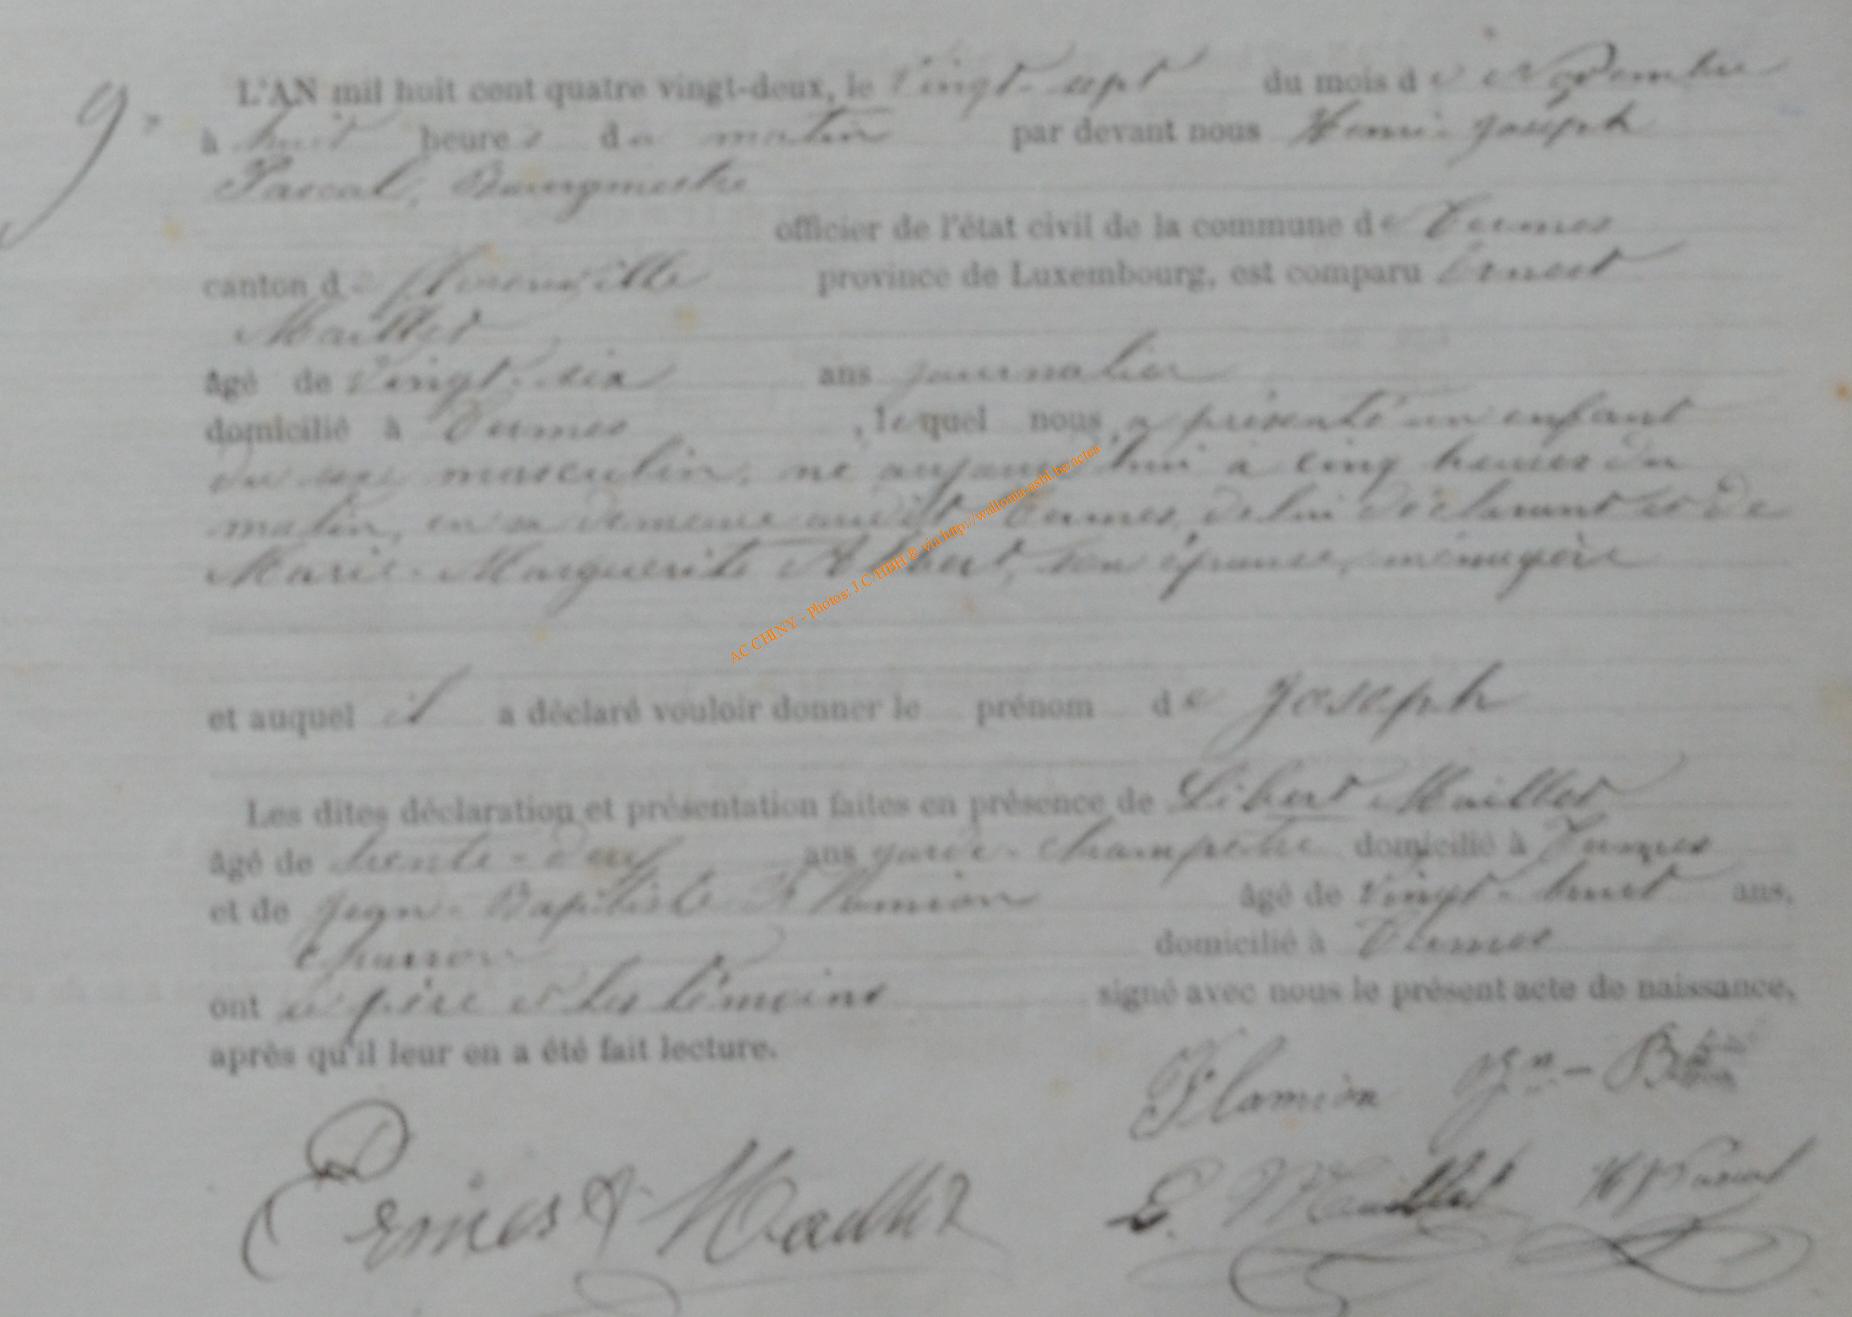 9.
L'AN mil huit cent quatre vingt-deux, le Vingt-sept du mois de Novembre
à huit heures du matin par devant nous Henri-Joseph
Pascal, Bourgmestre
officier de l'état civil de la commune de Termes
canton de Florenville province de Luxembourg, est comparu Ernest
Maillet
âgé de Vingt-six ans journalier
domicilié à Termes, lequel nous a présenté un enfant
du sexe masculin, né aujourd'hui à cinq heures du
matin, en sa demeure audit Termes, de lui déclarant et de
Marie-Marguerite Albert, son épouse, ménagère
et auquel il a déclaré vouloir donner le prénom de Joseph
Les dites déclaration et présentation faites en présence de Libert Maillet
âgé de trente-deux ans garde-champêtre domicilié à Termes
et de Jean-Baptiste Flamion âgé de Vingt-huit ans,
charron domicilié à Termes
ont le père et les témoins signé avec nous le présent acte de naissance,
après qu'il leur en a été fait lecture.
Flamion Jn-Bte
Ernest Maillet L. Maillet HJPascal
AC CHINY - photos: J.C @ via http://wallonia-asbl.be/actes